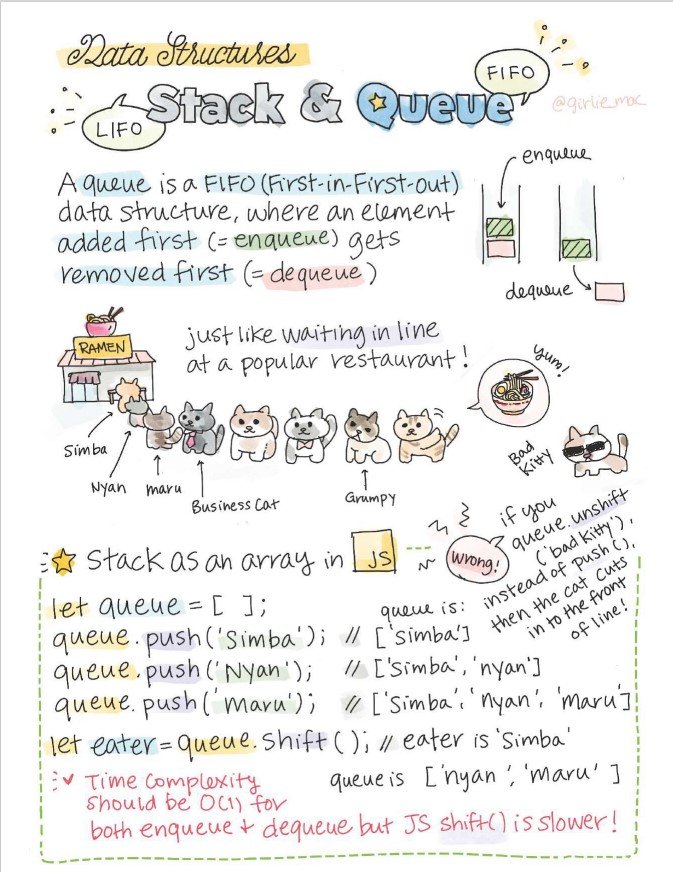 Data Structures
Stack & Queue
LIFO
FIFO
@girlie_mac
A queue is a FIFO (First-in-First-out)
data structure, where an element
added first (= enqueue) gets
removed first (= dequeue)
enqueue
dequeue
RAMEN
just like waiting in line
at a popular restaurant!
Yum!
Simba
Nyan
maru
Business Cat
Grumpy
Bad
Kitty
if you
queue.unshift
('bad kitty'),
instead of push(),
then the cat cuts
in to the front
of line!
Wrong!
Stack as an array in JS
let queue = [ ];
queue is:
queue.push('Simba'); // ['simba']
queue.push('Nyan'); // ['Simba', 'nyan']
queue.push('Maru'); // ['Simba', 'nyan', 'maru']
let eater = queue.shift(); // eater is 'Simba'
queue is ['nyan', 'maru']
Time complexity
should be O(1) for
both enqueue + dequeue but JS shift() is slower!